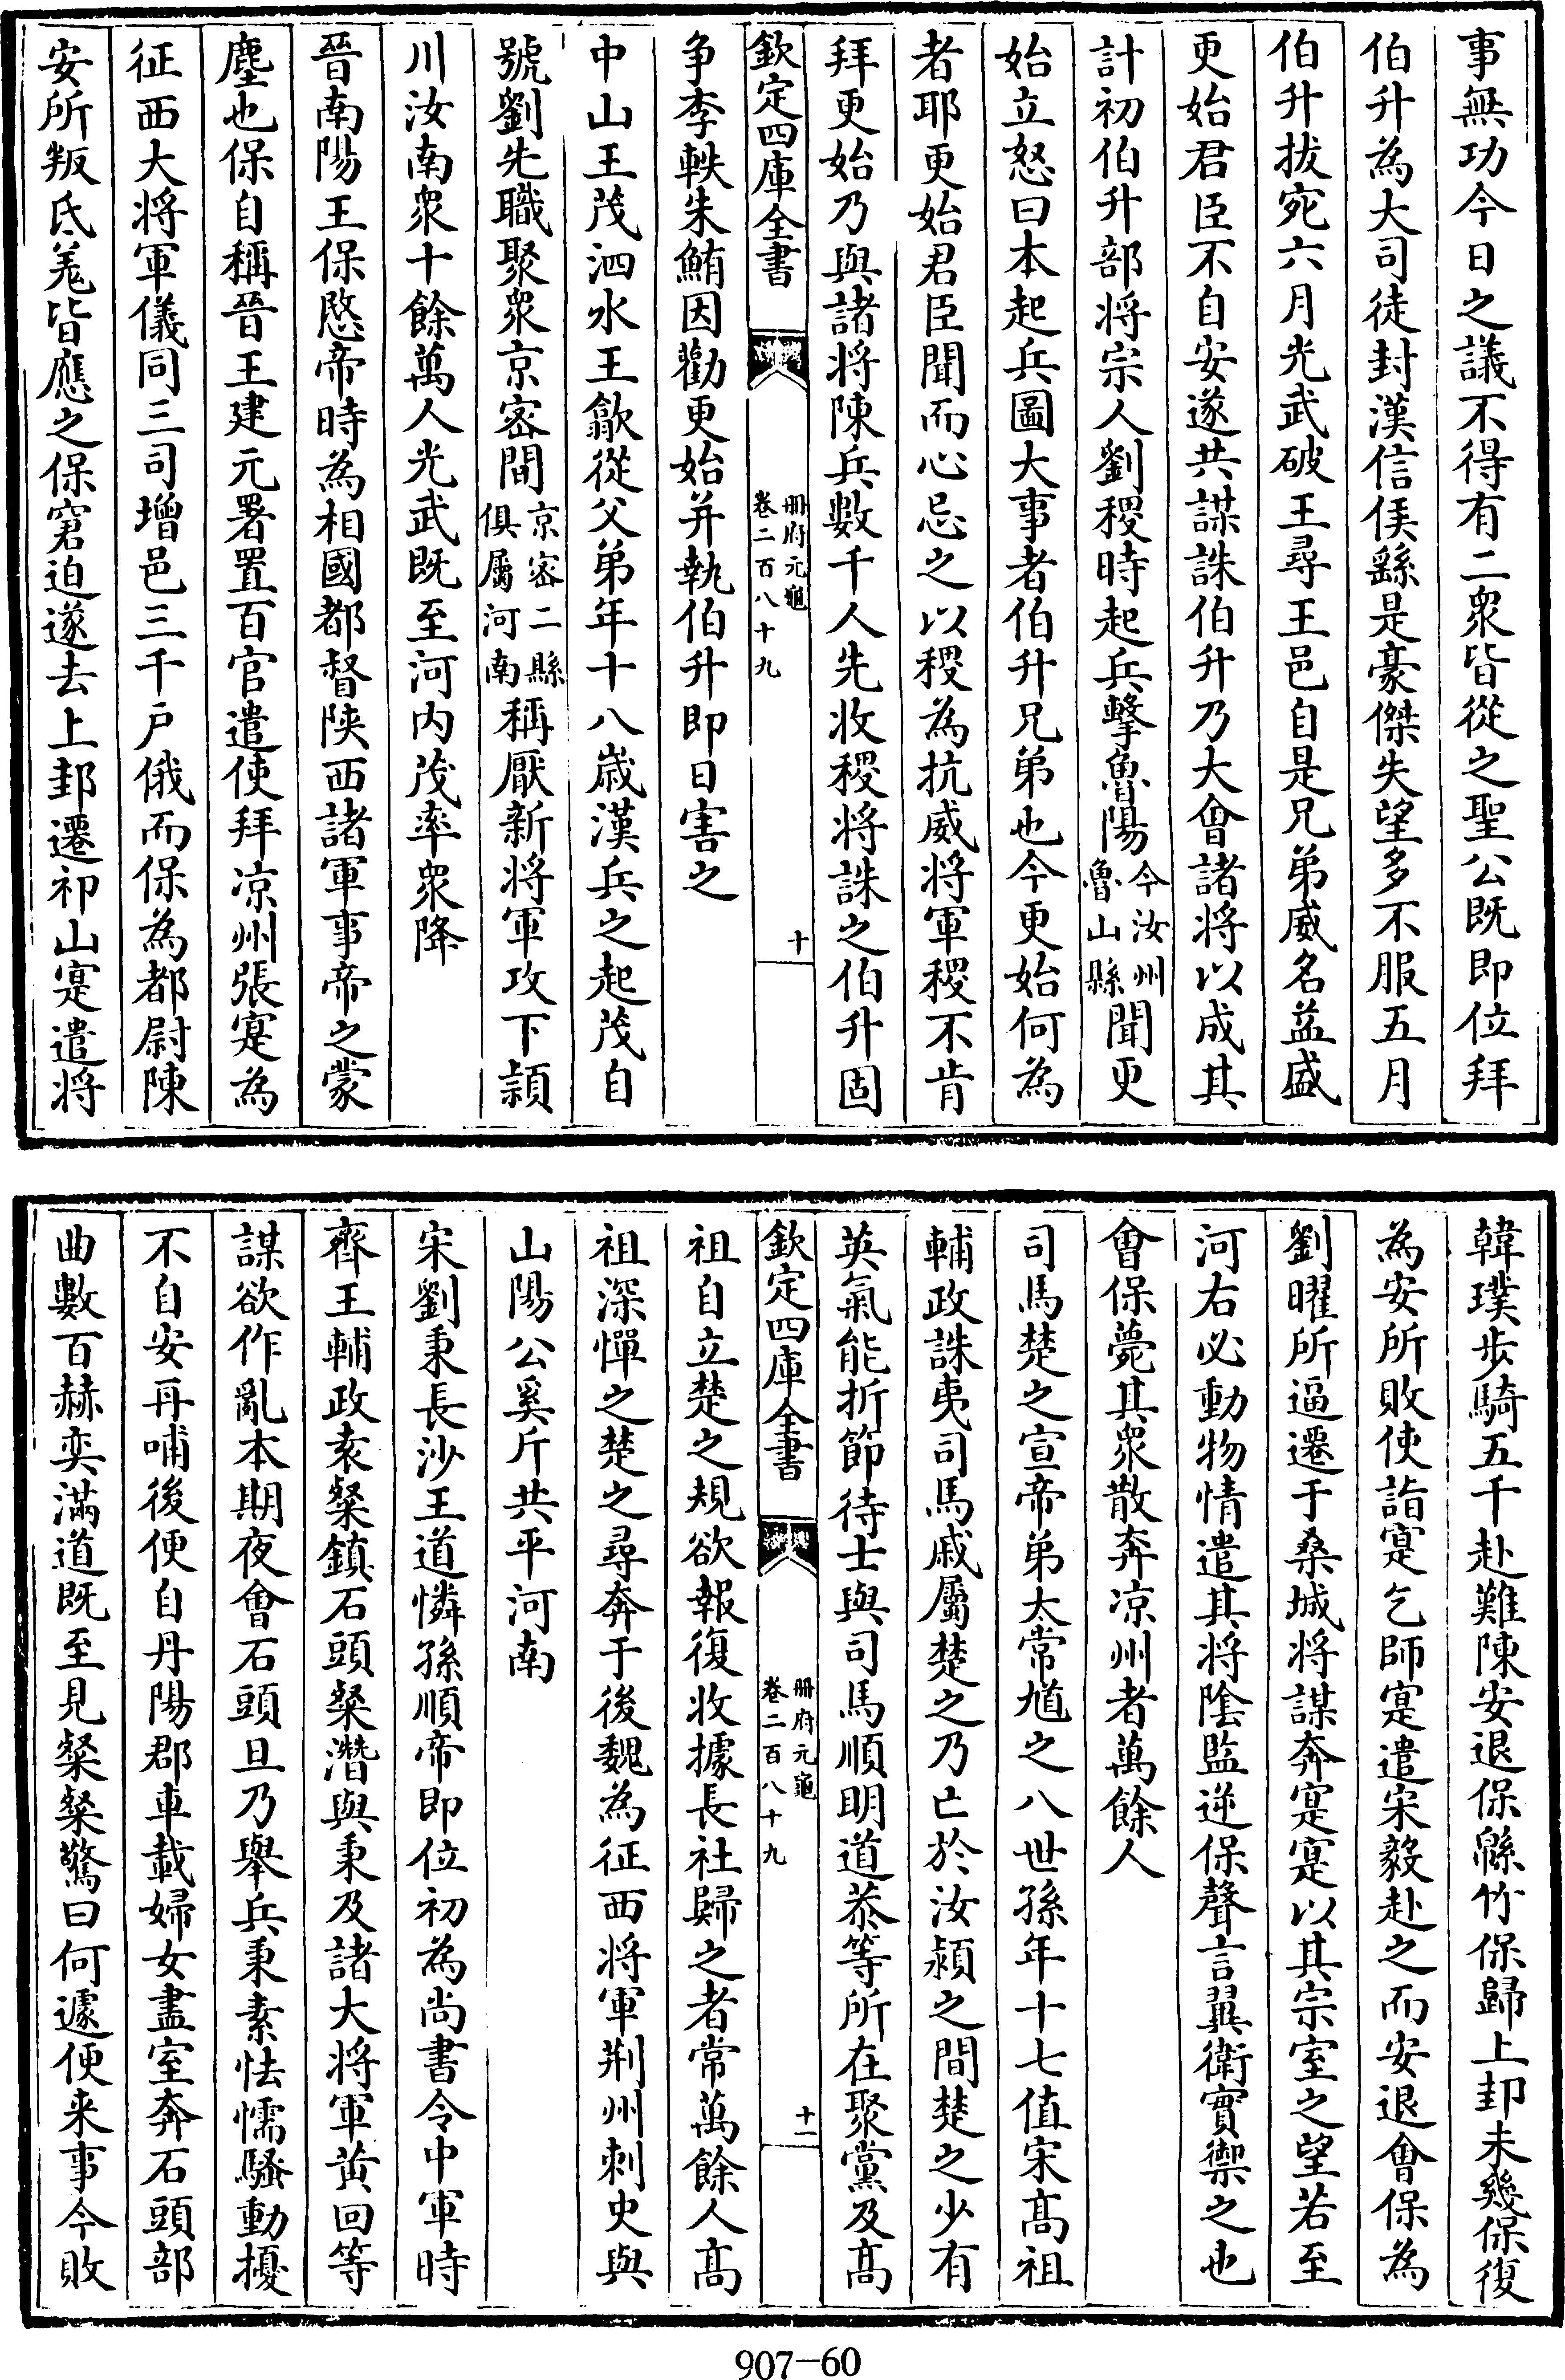 事無功今日之議不得有二衆皆從之聖公既即位拜
伯升為大司徒封漢信侯繇是豪傑失望多不服五月
伯升拔宛六月光武破王尋王邑自是兄弟威名益盛
更始君臣不自安遂共謀誅伯升乃大會諸将以成其
計初伯升部将宗人劉稷時起兵擊魯陽今汝州魯山縣聞更
始立怒曰本起兵圖大事者伯升兄弟也今更始何為
者耶更始君臣聞而心忌之以稷為抗威将軍稷不肯
拜更始乃與諸将陳兵數千人先收稷将誅之伯升固
欽定四庫全書
册府元龜
卷二百八十九
十
争李軼朱鮪因勸更始并執伯升即日害之
中山王茂泗水王歙從父弟年十八歳漢兵之起茂自
號劉先職聚衆京密間京密二縣俱屬河南稱厭新将軍攻下潁
川汝南衆十餘萬人光武既至河内茂率衆降
晉南陽王保愍帝時為相國都督陝西諸軍事帝之蒙
塵也保自稱晉王建元署置百官遣使拜凉州張寔為
征西大将軍儀同三司增邑三千戸俄而保為都尉陳
安所叛氐羌皆應之保窘迫遂去上邽遷祁山寔遣将
韓璞步騎五千赴難陳安退保緜竹保歸上邽未幾保復
為安所敗使詣寔乞師寔遣宋毅赴之而安退會保為
劉曜所逼遷于桑城将謀奔寔寔以其宗室之望若至
河右必動物情遣其将陰監逆保聲言翼衛實禦之也
會保薨其衆散奔凉州者萬餘人
司馬楚之宣帝弟太常馗之八世孫年十七值宋髙祖
輔政誅夷司馬戚屬楚之乃亡於汝潁之間楚之少有
英氣能折節待士與司馬順明道恭等所在聚黨及髙
欽定四庫全書
册府元龜
卷二百八十九
十一
祖自立楚之規欲報復收據長社歸之者常萬餘人髙
祖深憚之楚之尋奔于後魏為征西将軍荆州刺史與
山陽公奚斤共平河南
宋劉秉長沙王道憐孫順帝即位初為尚書令中軍時
齊王輔政袁粲鎮石頭粲潛與秉及諸大将軍黄回等
謀欲作亂本期夜會石頭旦乃舉兵秉素怯懦騷動擾
不自安再哺後便自丹陽郡車載婦女盡室奔石頭部
曲數百赫奕滿道既至見粲粲驚曰何遽便来事今敗
907-60